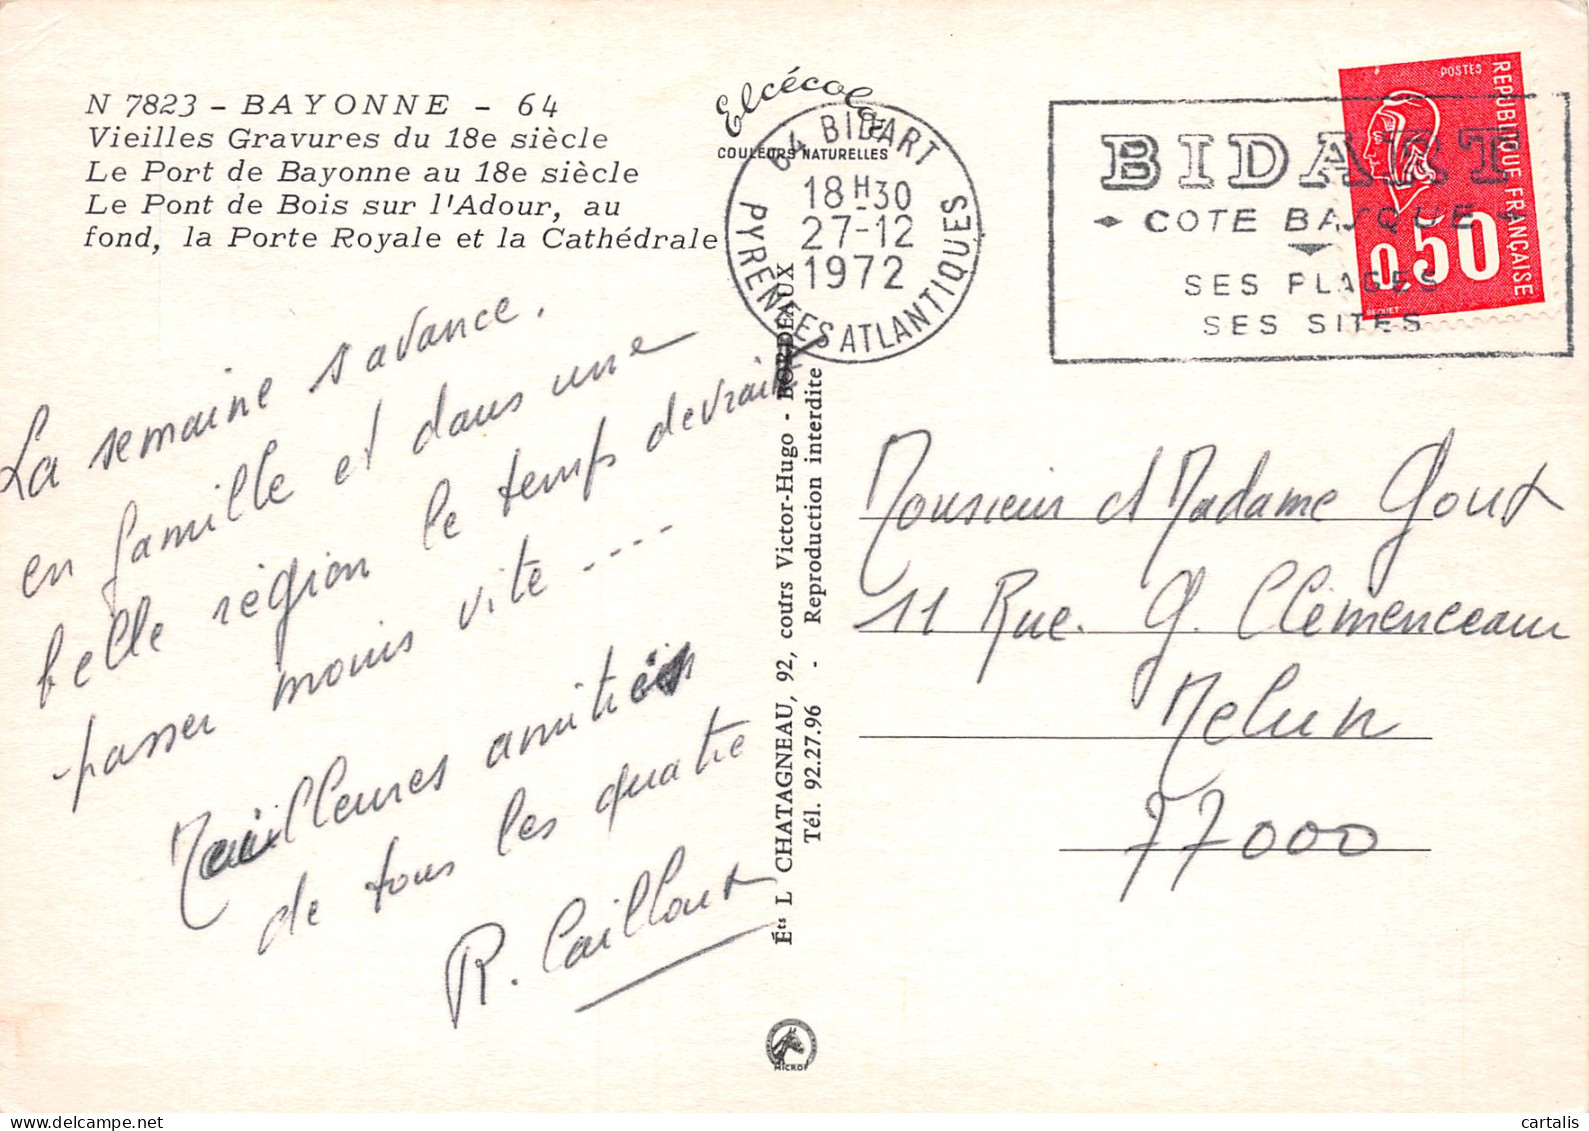 N 7823 - BAYONNE - 64
Vieilles Gravures du 18e siècle
Le Port de Bayonne au 18e siècle
Le Pont de Bois sur l'Adour, au
fond, la Porte Royale et la Cathédrale
Elcécolor
COULEURS NATURELLES
64 BIDART
18 H 30
27-12
1972
PYRENEES ATLANTIQUES
BIDART
COTE BASQUE
SES PLAGES
SES SITES
POSTES
REPUBLIQUE FRANÇAISE
0,50
BEQUET
La semaine s'avance.
en famille et dans une
belle région le temps devrait
passer moins vite ----
Meilleures amitiés
de tous les quatre
R. Caillout
Éts L CHATAGNEAU, 92, cours Victor-Hugo - BORDEAUX
Tél. 92.27.96 - Reproduction interdite
Monsieur et Madame Gout
11 Rue. G. Clémenceau
Melun
77000
MICRO
cartalis